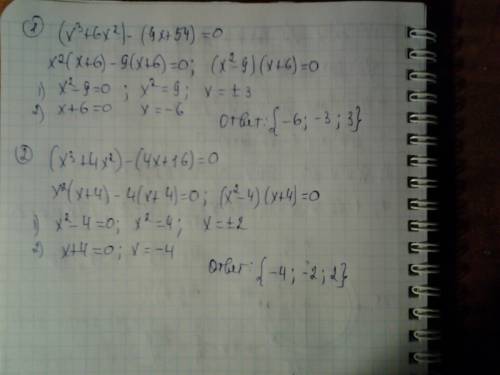 ① (x³+6x²)-(9x+54)=0
x²(x+6)-9(x+6)=0; (x²-9)(x+6)=0
1) x²-9=0 ; x²=9; x=±3
2) x+6=0 x=-6
Ответ: {-6; -3; 3}
② (x³+4x²)-(4x+16)=0
x²(x+4)-4(x+4)=0; (x²-4)(x+4)=0
1) x²-4=0; x²=4; x=±2
2) x+4=0; x=-4
Ответ: {-4; -2; 2}